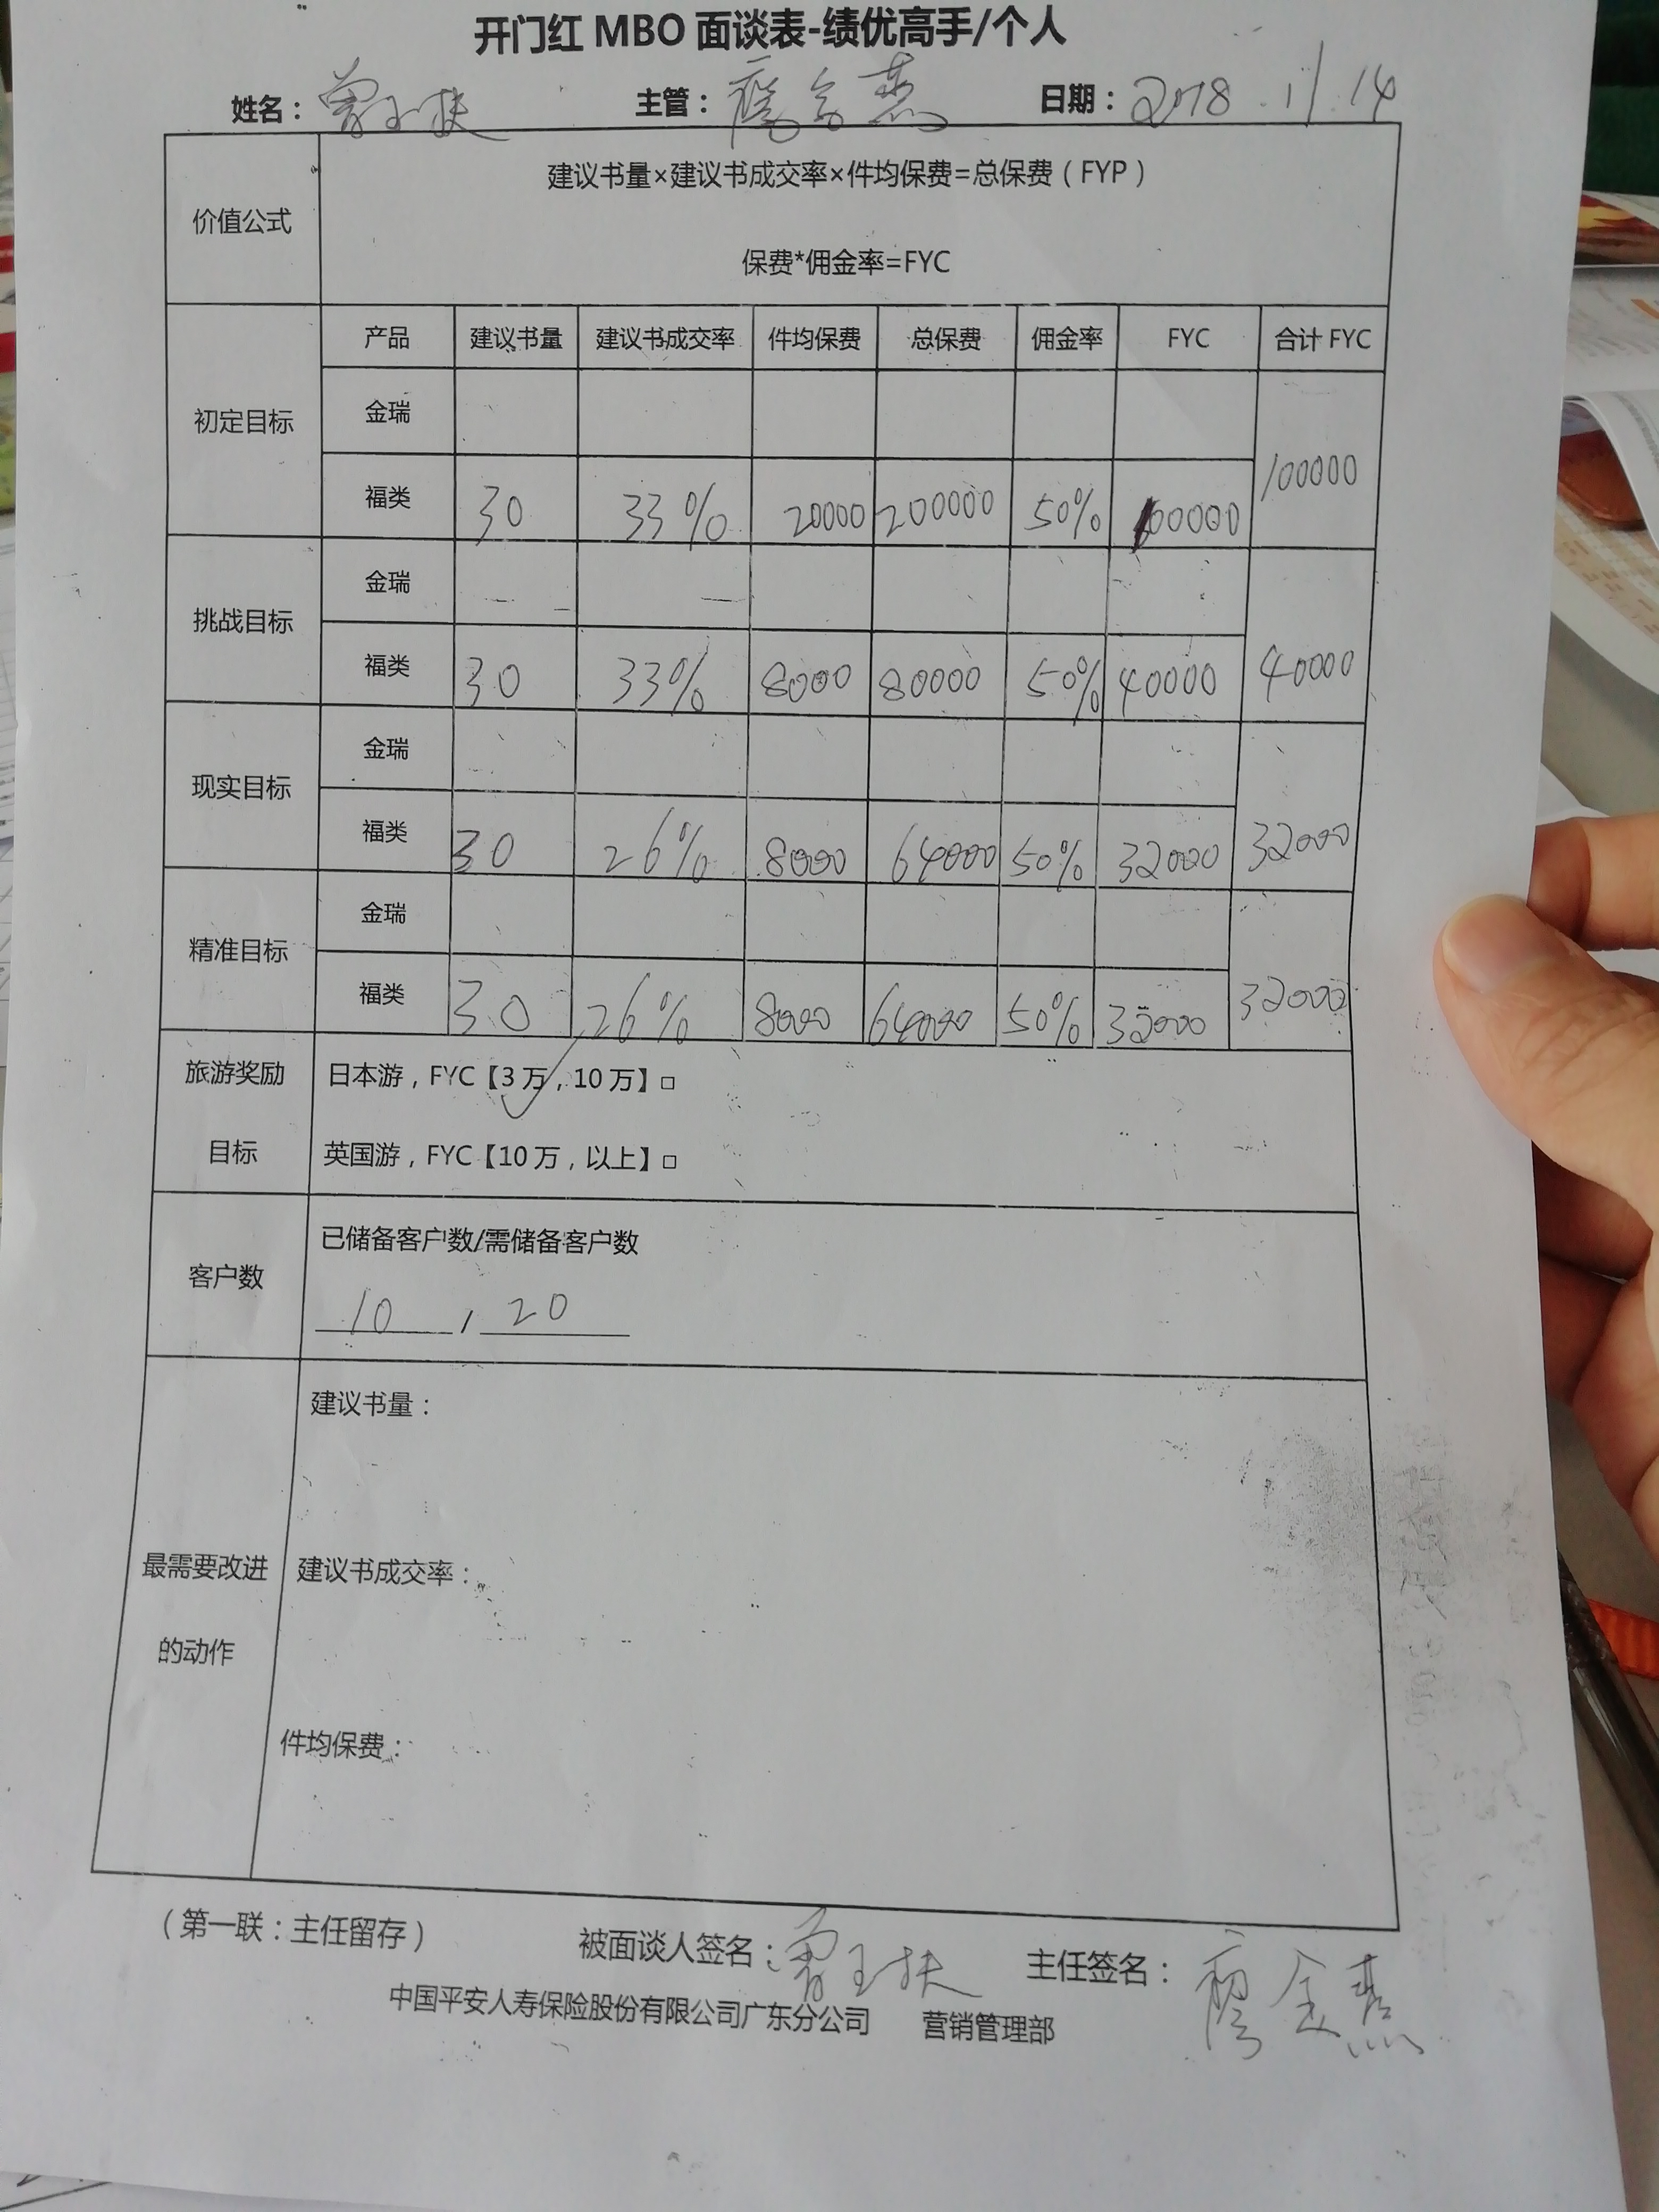 开门红 MBO 面谈表-绩优高手/个人
姓名： 主管： 日期：2018.11.14
价值公式
建议书量×建议书成交率×件均保费=总保费（FYP）
保费*佣金率=FYC
产品 建议书量 建议书成交率 件均保费 总保费 佣金率 FYC 合计 FYC
初定目标
金瑞
福类 30 33% 20000 200000 50% 100000
100000
挑战目标
金瑞
福类 30 33% 8000 80000 50% 40000
40000
现实目标
金瑞
福类 30 26% 8000 64000 50% 32000
32000
精准目标
金瑞
福类 30 26% 8000 64000 50% 32000
32000
旅游奖励
目标
日本游，FYC【3万，10万】□
英国游，FYC【10万，以上】□
客户数
已储备客户数/需储备客户数
10 / 20
最需要改进
的动作
建议书量：
建议书成交率：
件均保费：
（第一联：主任留存） 被面谈人签名： 主任签名：
中国平安人寿保险股份有限公司广东分公司 营销管理部